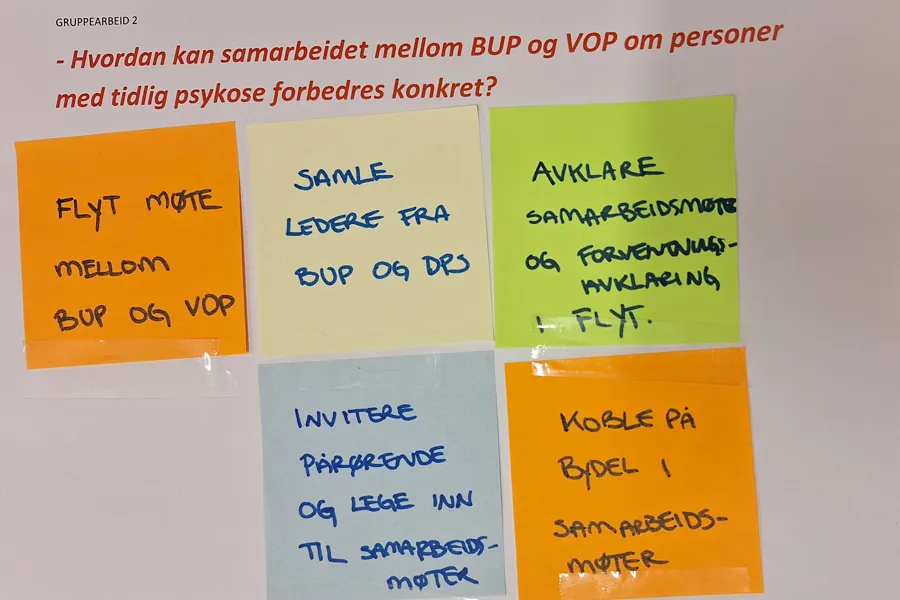 GRUPPEARBEID 2
- Hvordan kan samarbeidet mellom BUP og VOP om personer
med tidlig psykose forbedres konkret?
FLYT MØTE
MELLOM
BUP OG VOP
SAMLE
LEDERE FRA
BUP OG DPS
AVKLARE
SAMARBEIDSMØTE
OG FORVENTNINGS-
AVKLARING
I FLYT.
INVITERE
PÅRØRENDE
OG LEGE INN
TIL SAMARBEIDS-
MØTER
KOBLE PÅ
BYDEL I
SAMARBEIDS-
MØTER